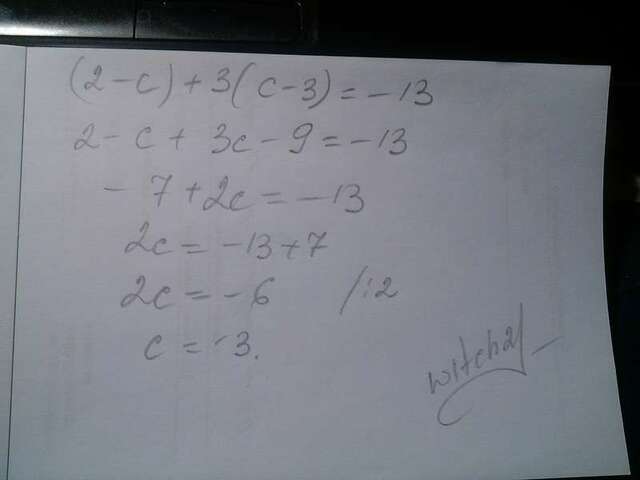 (2-c)+3(c-3)=-13
2-c+3c-9=-13
-7+2c=-13
2c=-13+7
2c=-6 /:2
c=-3.
witch21